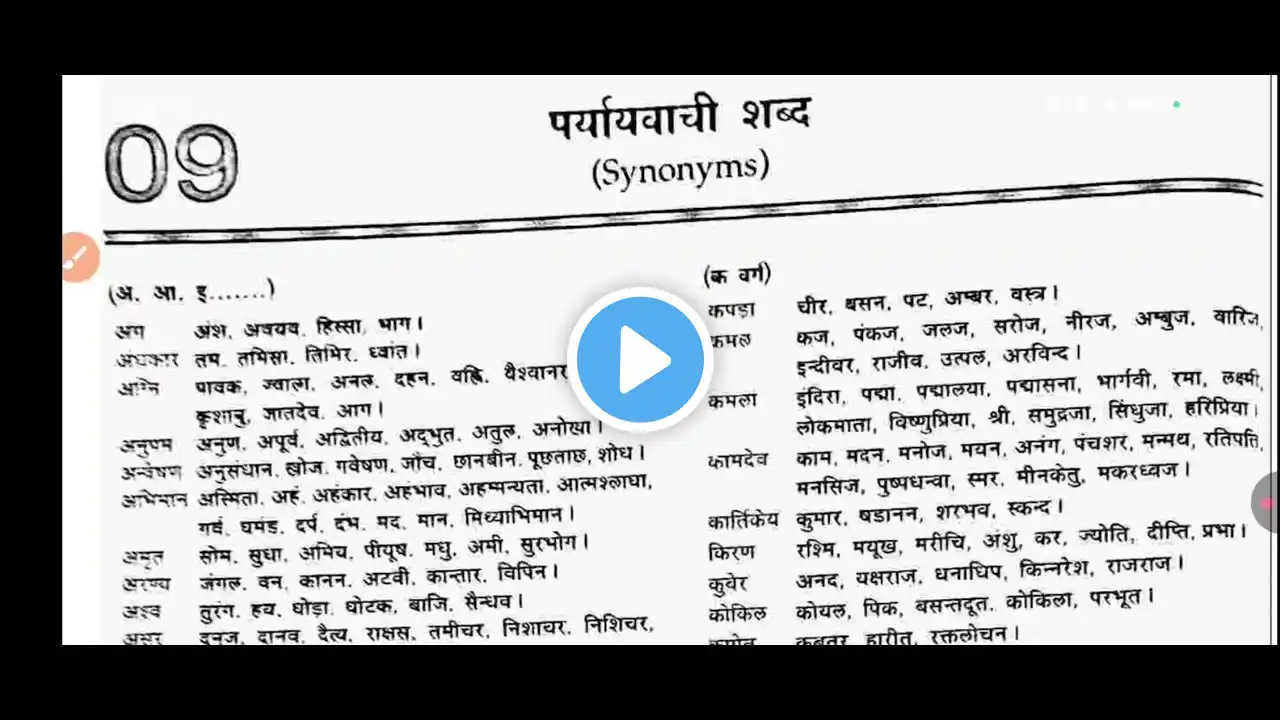 09
पर्यायवाची शब्द
(Synonyms)
(अ. आ. इ.......)
अंग अंश, अवयव, हिस्सा, भाग।
अंधकार तम, तमिसा, तिमिर, ध्वांत।
अग्नि पावक, ज्वाला, अनल, दहन, वह्नि, वैश्वानर
कृशानु, जातदेव, आग।
अनुपम अनुण, अपूर्व, अद्वितीय, अद्‌भुत, अतुल, अनोखा।
अन्वेषण अनुसंधान, खोज, गवेषण, जाँच, छानबीन, पूछताछ, शोध।
अभिमान अस्मिता, अहं, अहंकार, अहंभाव, अहम्मन्यता, आत्मश्लाघा,
गर्व, घमंड, दर्प, दंभ, मद, मान, मिथ्याभिमान।
अमृत सोम, सुधा, अमिय, पीयूष, मधु, अमी, सुरभोग।
अरण्य जंगल, वन, कानन, अटवी, कान्तार, विपिन।
अश्व तुरंग, हय, घोड़ा, घोटक, बाजि, सैन्धव।
असुर दनुज, दानव, दैत्य, राक्षस, तमीचर, निशाचर, निशिचर,
(क वर्ग)
कपड़ा चीर, बसन, पट, अम्बर, वस्त्र।
कमल कज, पंकज, जलज, सरोज, नीरज, अम्बुज, वारिज,
इन्दीवर, राजीव, उत्पल, अरविन्द।
कमला इंदिरा, पद्मा, पद्मालया, पद्मासना, भार्गवी, रमा, लक्ष्मी,
लोकमाता, विष्णुप्रिया, श्री, समुद्रजा, सिंधुजा, हरिप्रिया।
कामदेव काम, मदन, मनोज, मयन, अनंग, पंचशर, मन्मथ, रतिपति,
मनसिज, पुष्पधन्वा, स्मर, मीनकेतु, मकरध्वज।
कार्तिकेय कुमार, षडानन, शरभव, स्कन्द।
किरण रश्मि, मयूख, मरीचि, अंशु, कर, ज्योति, दीप्ति, प्रभा।
कुवेर अनद, यक्षराज, धनाधिप, किन्नरेश, राजराज।
कोकिल कोयल, पिक, बसन्तदूत, कोकिला, परभूत।
कबूतर, हारीत, रक्तलोचन।